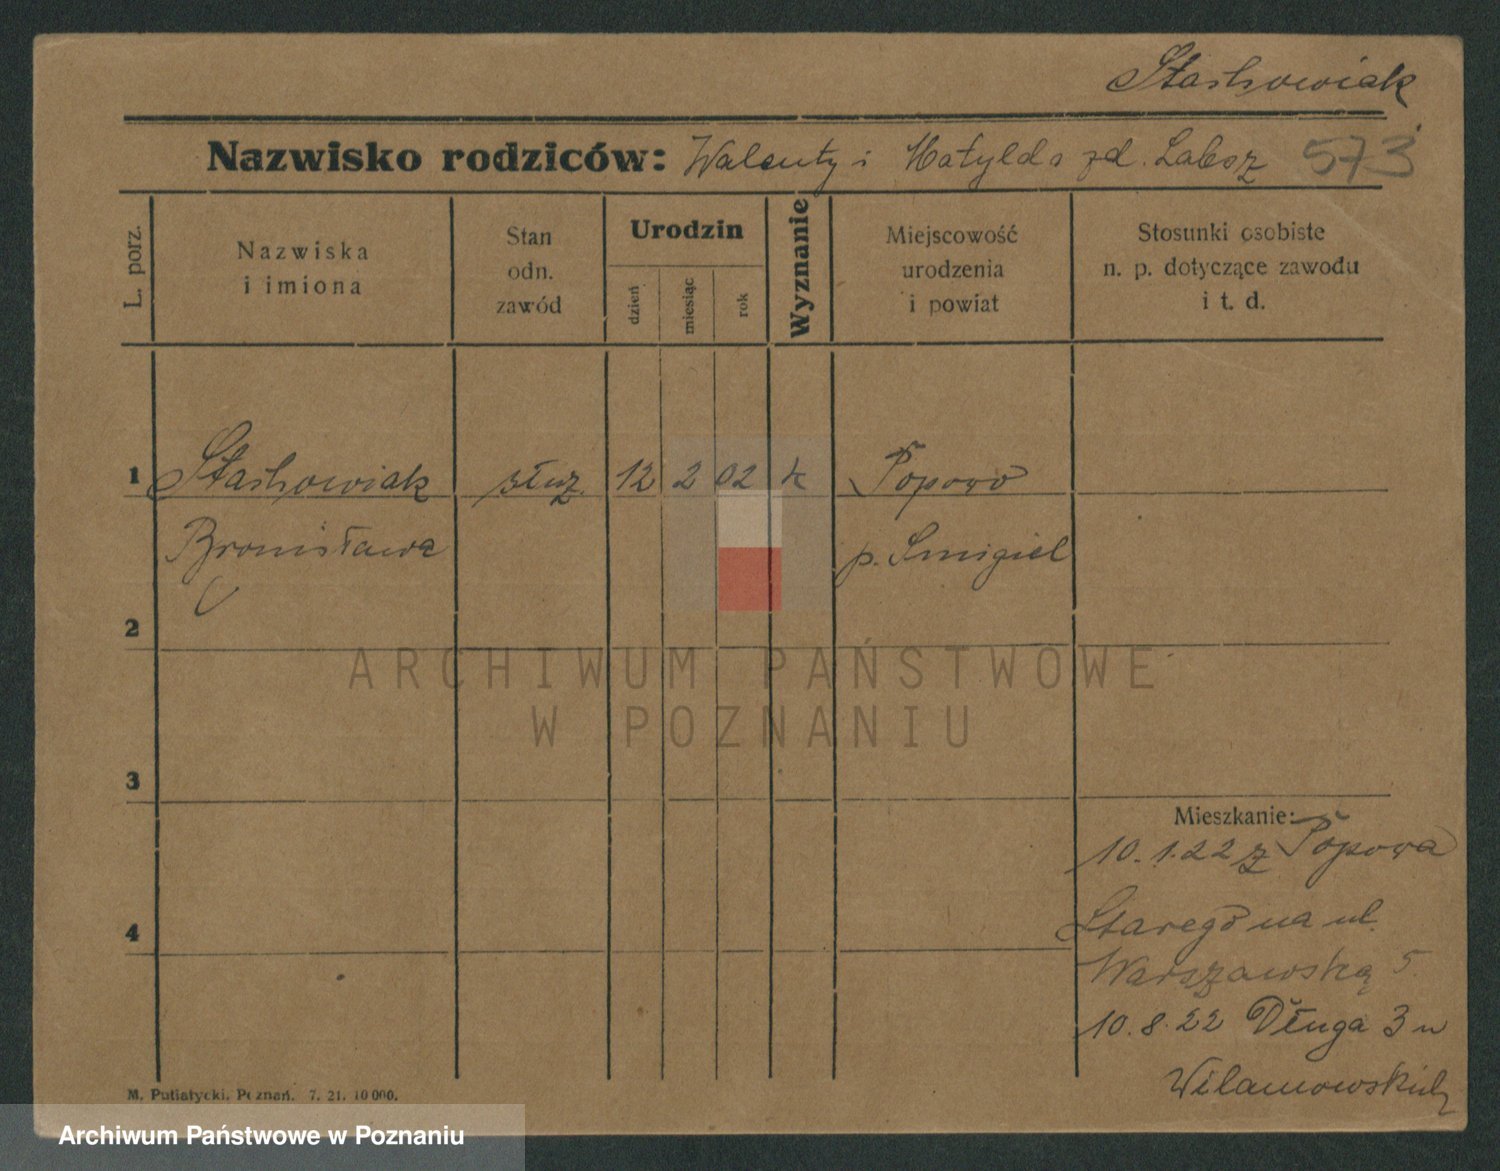 Stachowiak
Nazwisko rodziców: Walenty i Matylda zd. Labsz 573
L. porz.
Nazwiska i imiona
Stan odn. zawód
Urodzin
dzień
miesiąc
rok
Wyznanie
Miejscowość urodzenia i powiat
Stosunki osobiste n. p. dotyczące zawodu i t. d.
1 Stachowiak służ. 12 2 02 k Popowo
Bronisława p. Smigiel
2
3
4
Mieszkanie:
10.1.22 z Popowa
Starego na ul.
Warszawską 5.
10.8.22 Długa 3 u
Wilamowskich
M. Putiatycki. Poznań. 7. 21. 10 000.
ARCHIWUM PAŃSTWOWE
W POZNANIU
Archiwum Państwowe w Poznaniu